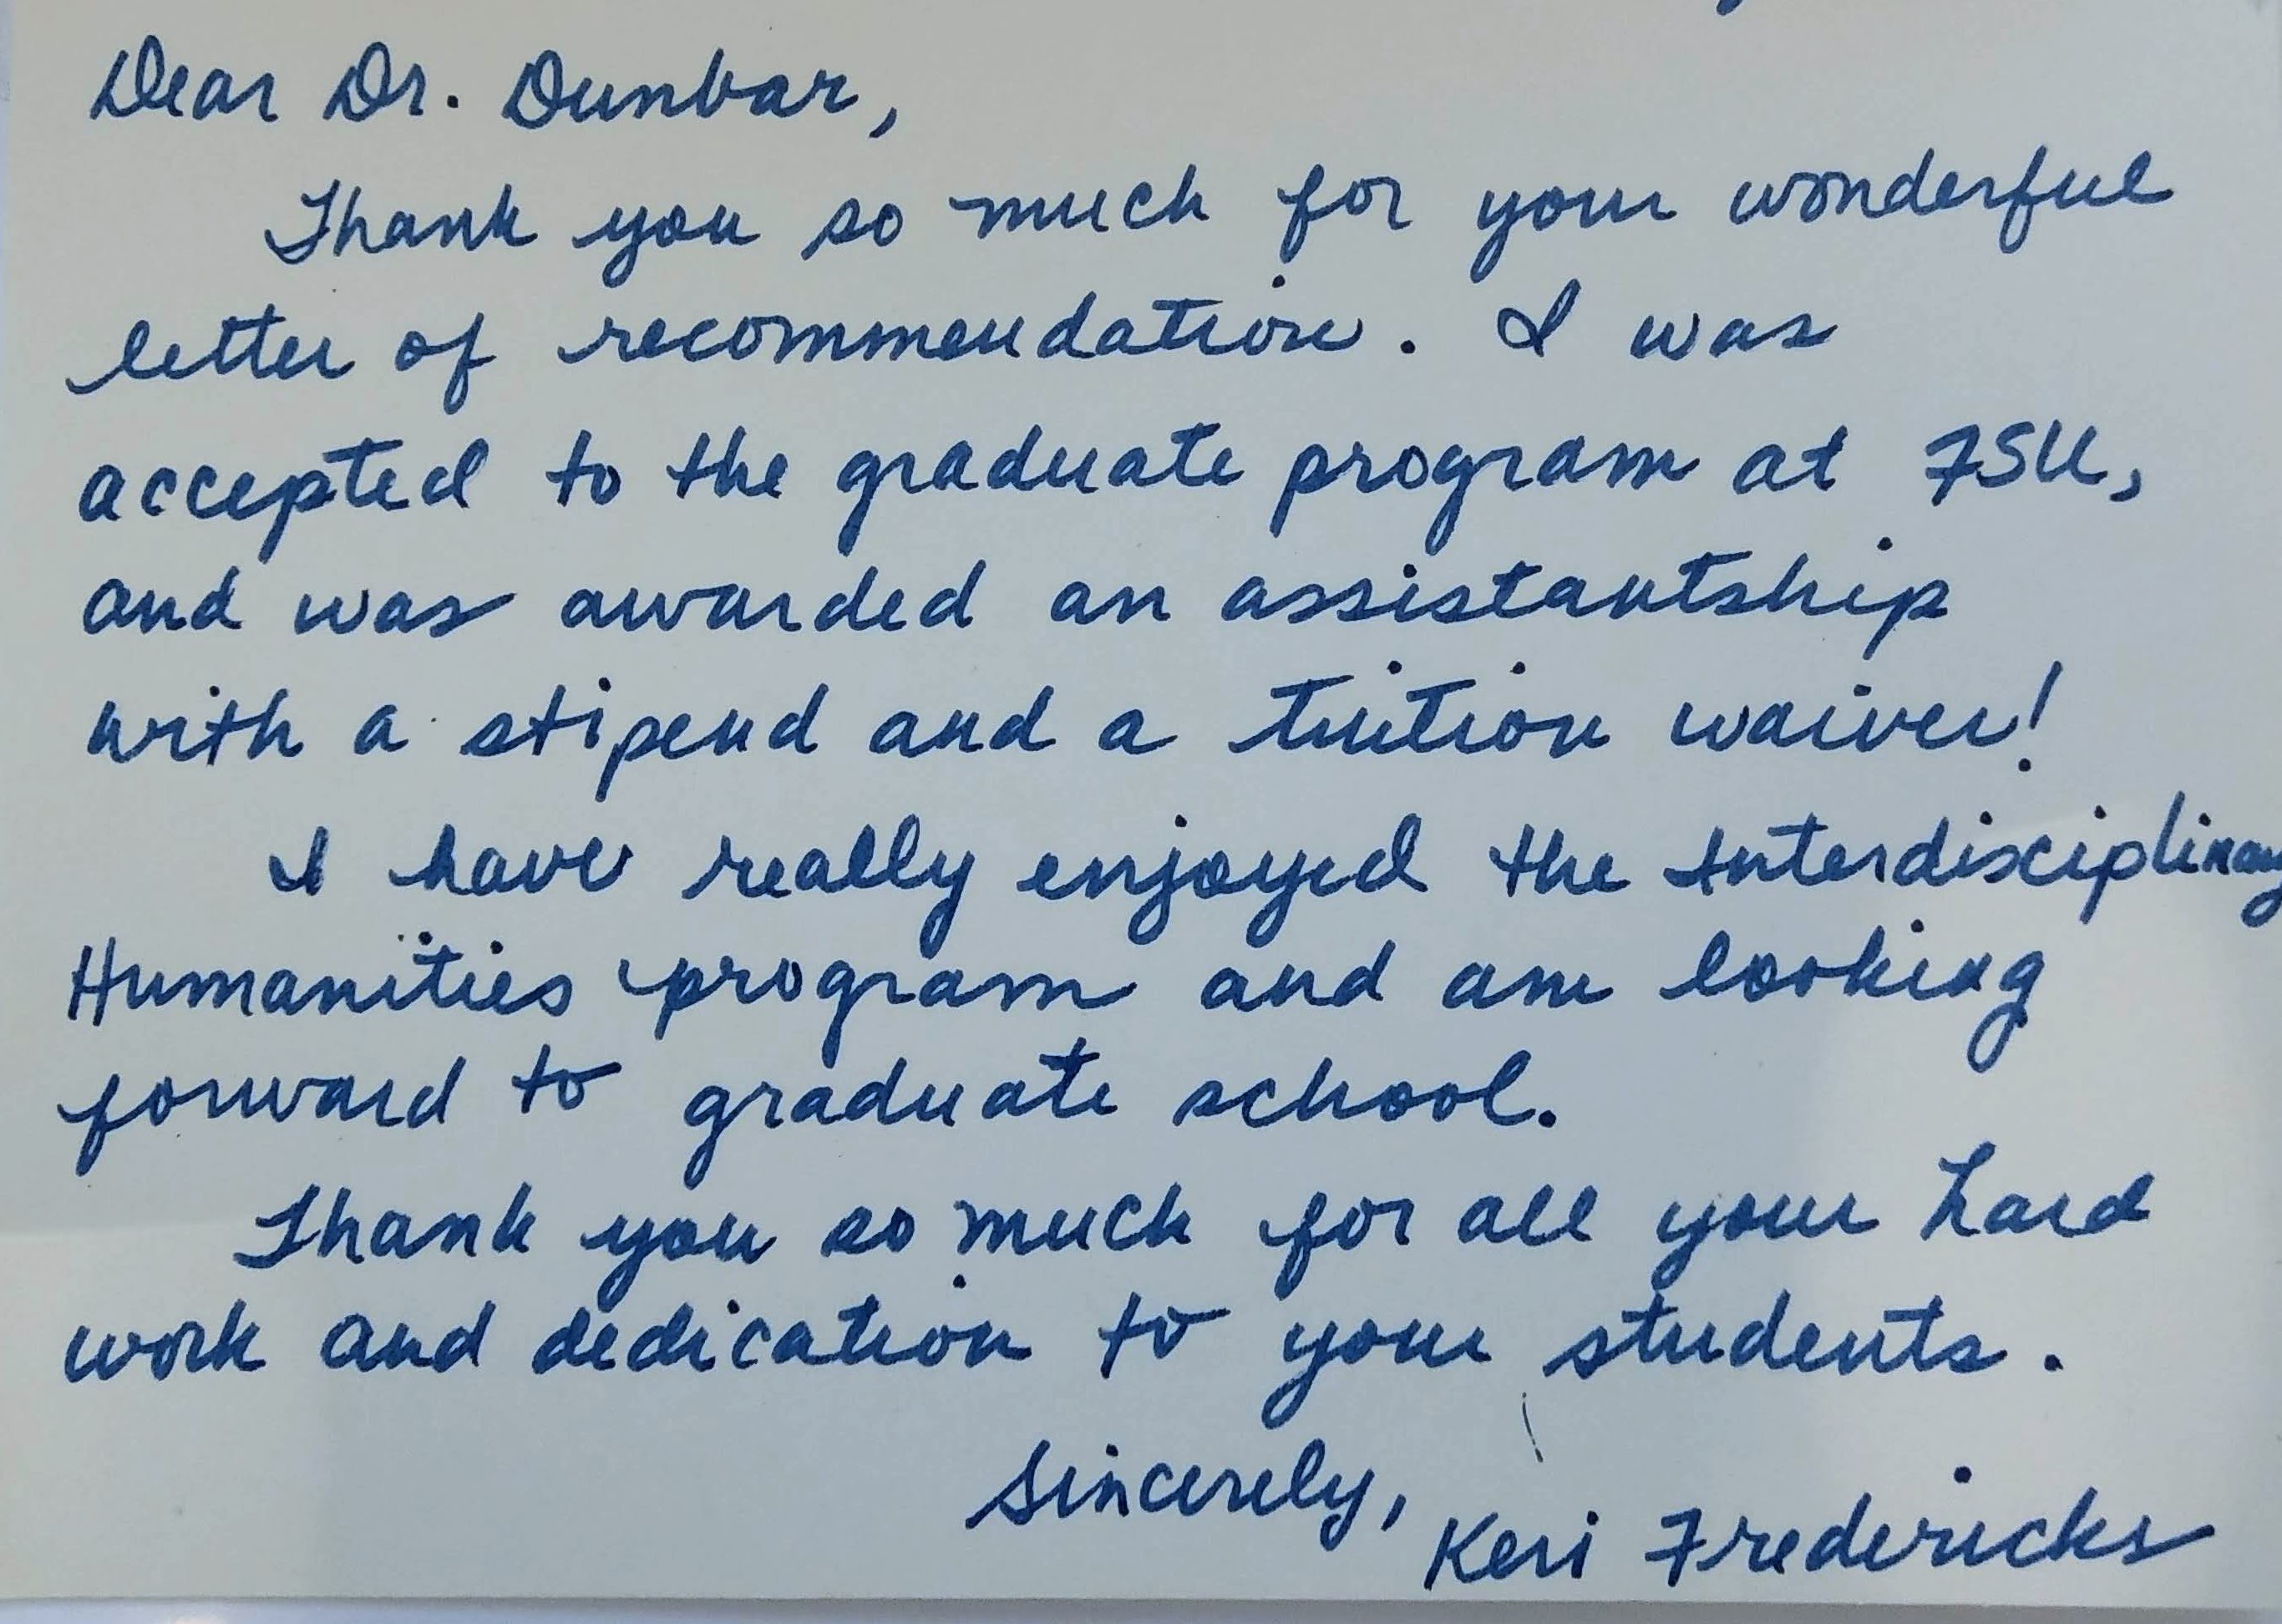 Dear Dr. Dunbar,
Thank you so much for your wonderful
letter of recommendation. I was
accepted to the graduate program at FSU,
and was awarded an assistantship
with a stipend and a tuition waiver!
I have really enjoyed the Interdisciplinary
Humanities program and am looking
forward to graduate school.
Thank you so much for all your hard
work and dedication to your students.
Sincerely,
Keri Fredericks